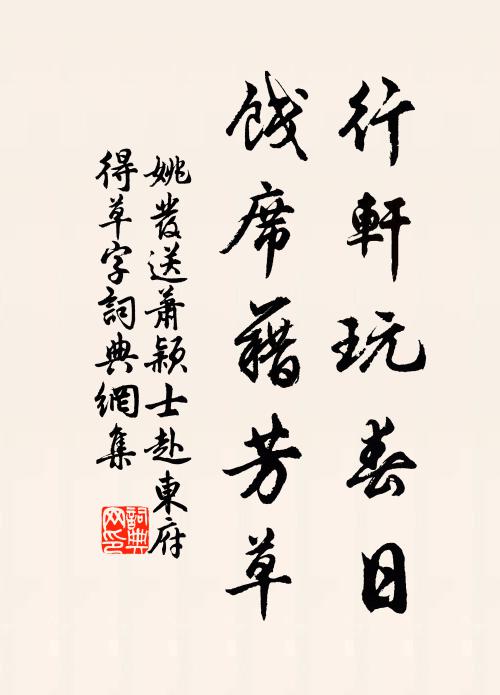 行軒玩春日
餞席藉芳草
姚發送蕭穎士赴東府
得草字詞典網集
詞典
网印